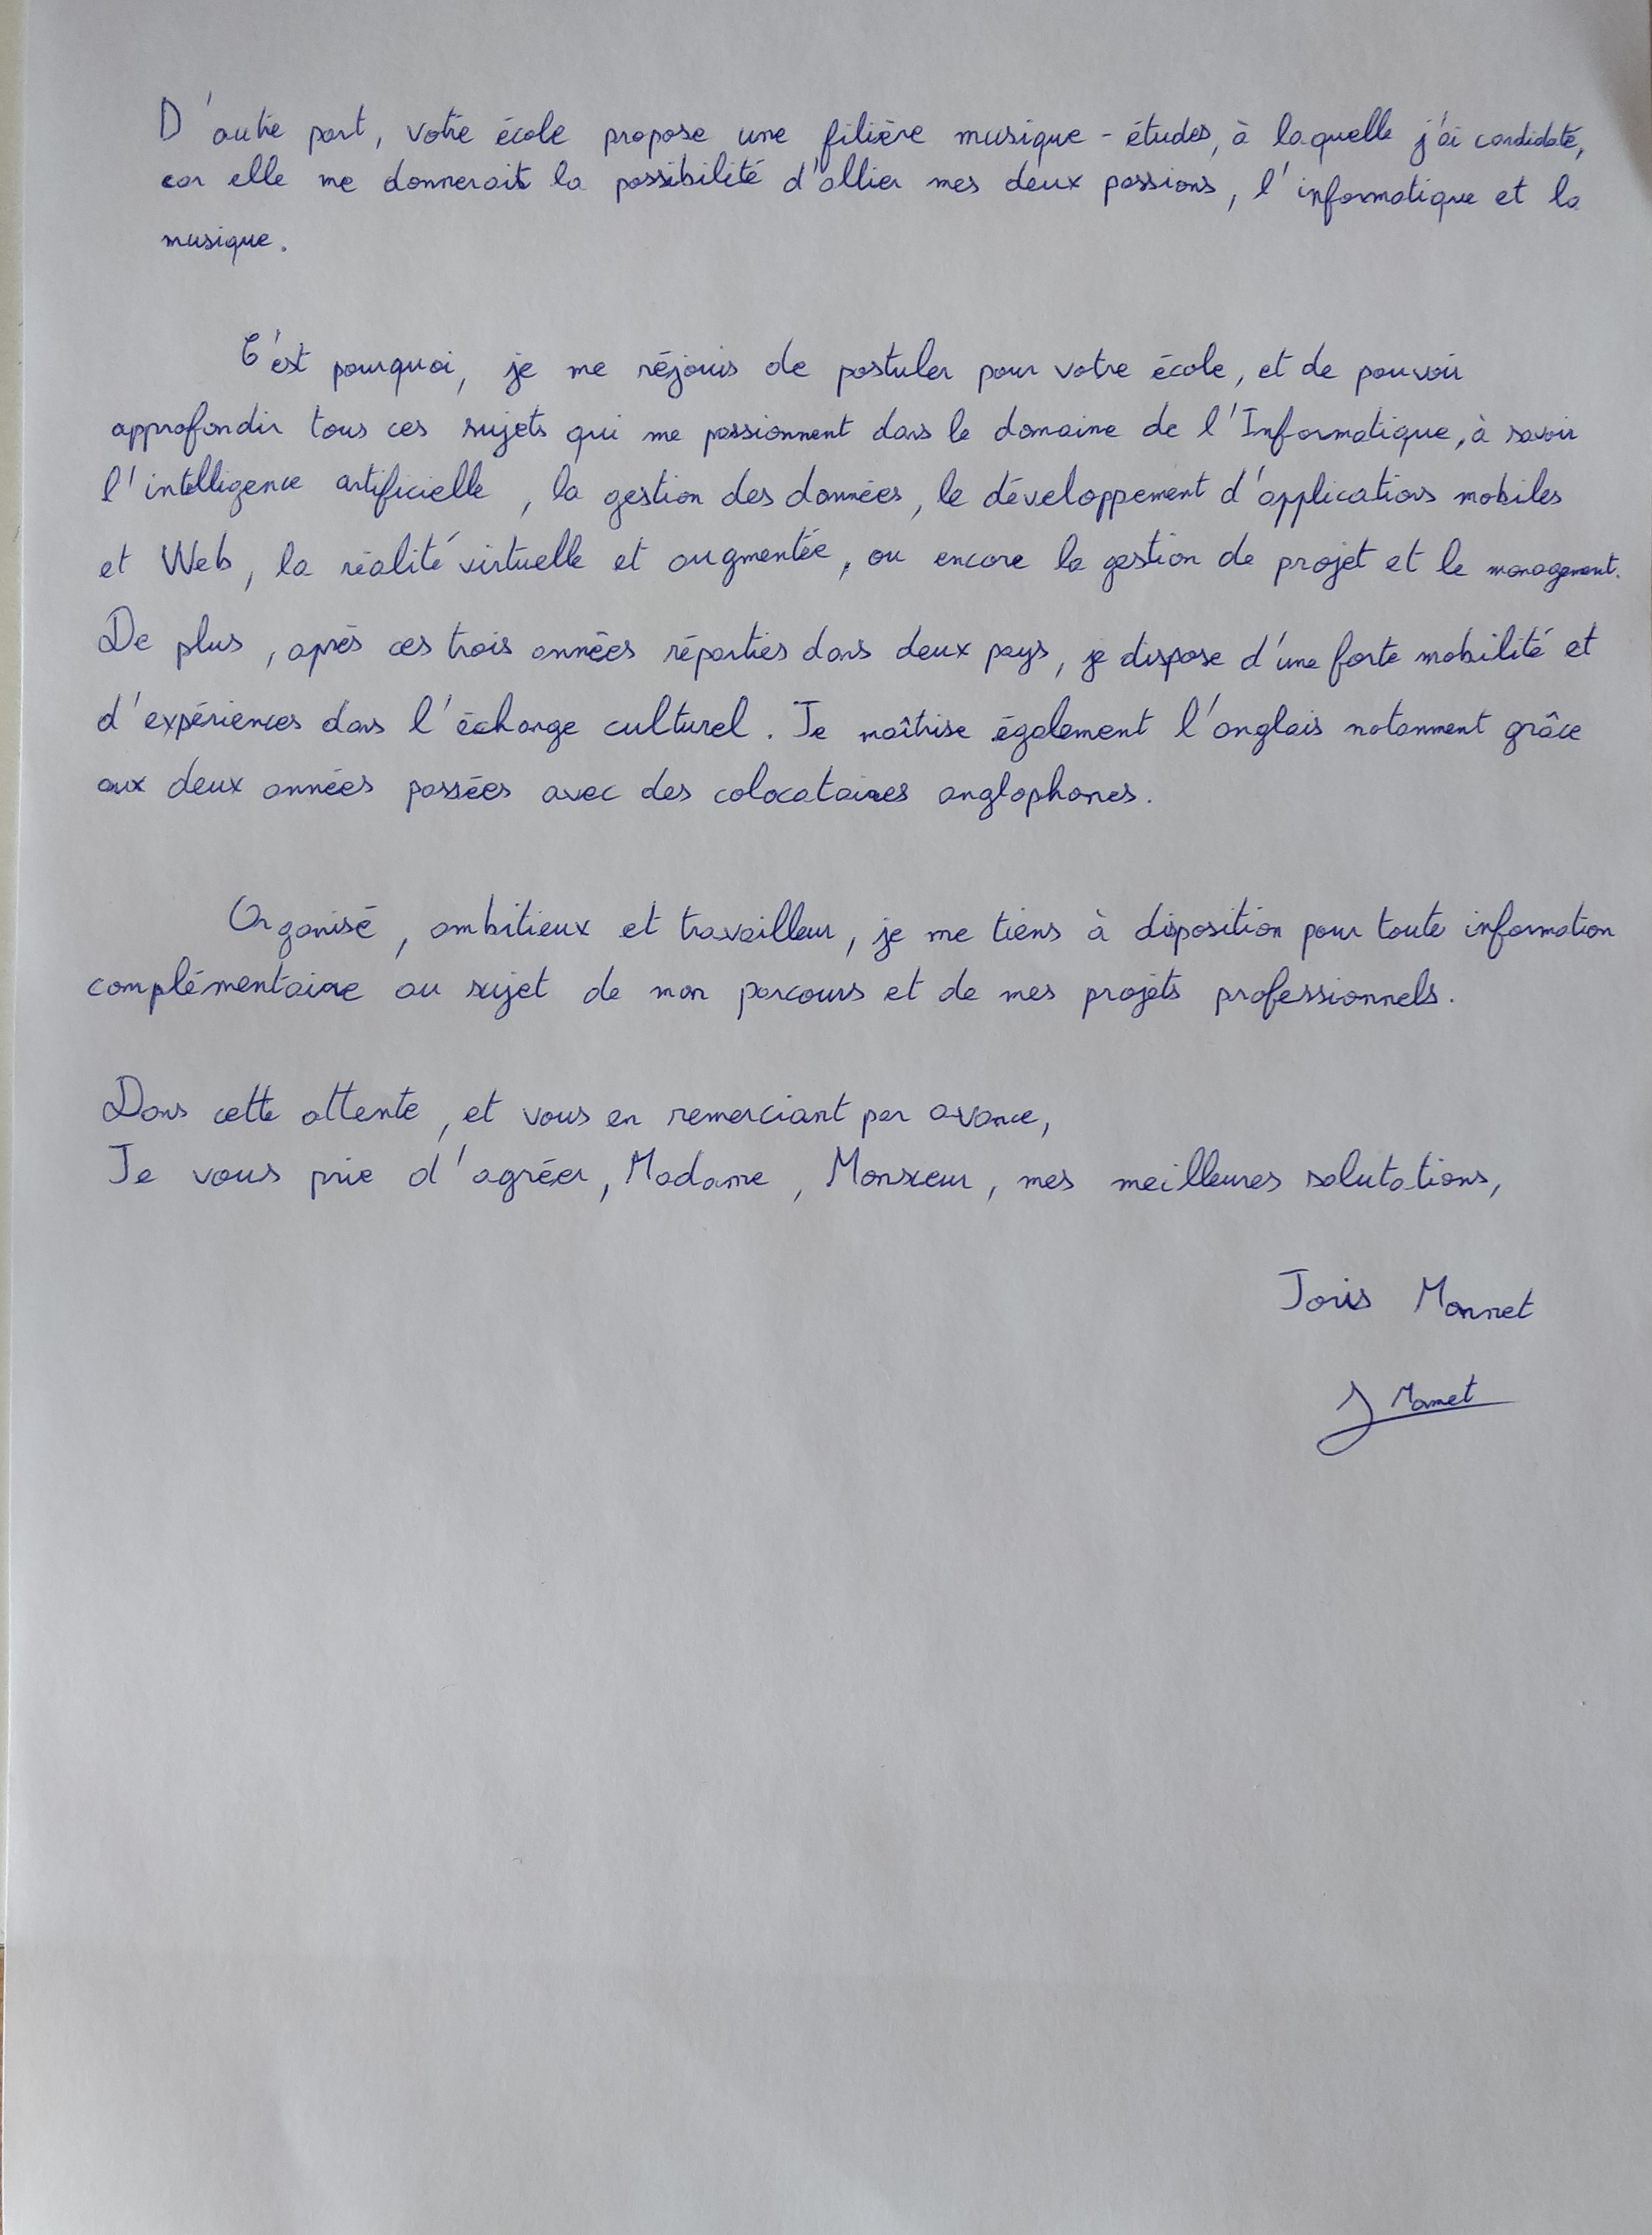 D'autre part, votre école propose une filière musique - études, à laquelle j'ai candidaté,
car elle me donnerait la possibilité d'allier mes deux passions, l'informatique et la
musique.
C'est pourquoi, je me réjouis de postuler pour votre école, et de pouvoir
approfondir tous ces sujets qui me passionnent dans le domaine de l'Informatique, à savoir
l'intelligence artificielle, la gestion des données, le développement d'applications mobiles
et Web, la réalité virtuelle et augmentée, ou encore la gestion de projet et le management.
De plus, après ces trois années réparties dans deux pays, je dispose d'une forte mobilité et
d'expériences dans l'échange culturel. Je maîtrise également l'anglais notamment grâce
aux deux années passées avec des colocataires anglophones.
Organisé, ambitieux et travailleur, je me tiens à disposition pour toute information
complémentaire au sujet de mon parcours et de mes projets professionnels.
Dans cette attente, et vous en remerciant par avance,
Je vous prie d'agréer, Madame, Monsieur, mes meilleures salutations,
Joris Monnet
J Monnet